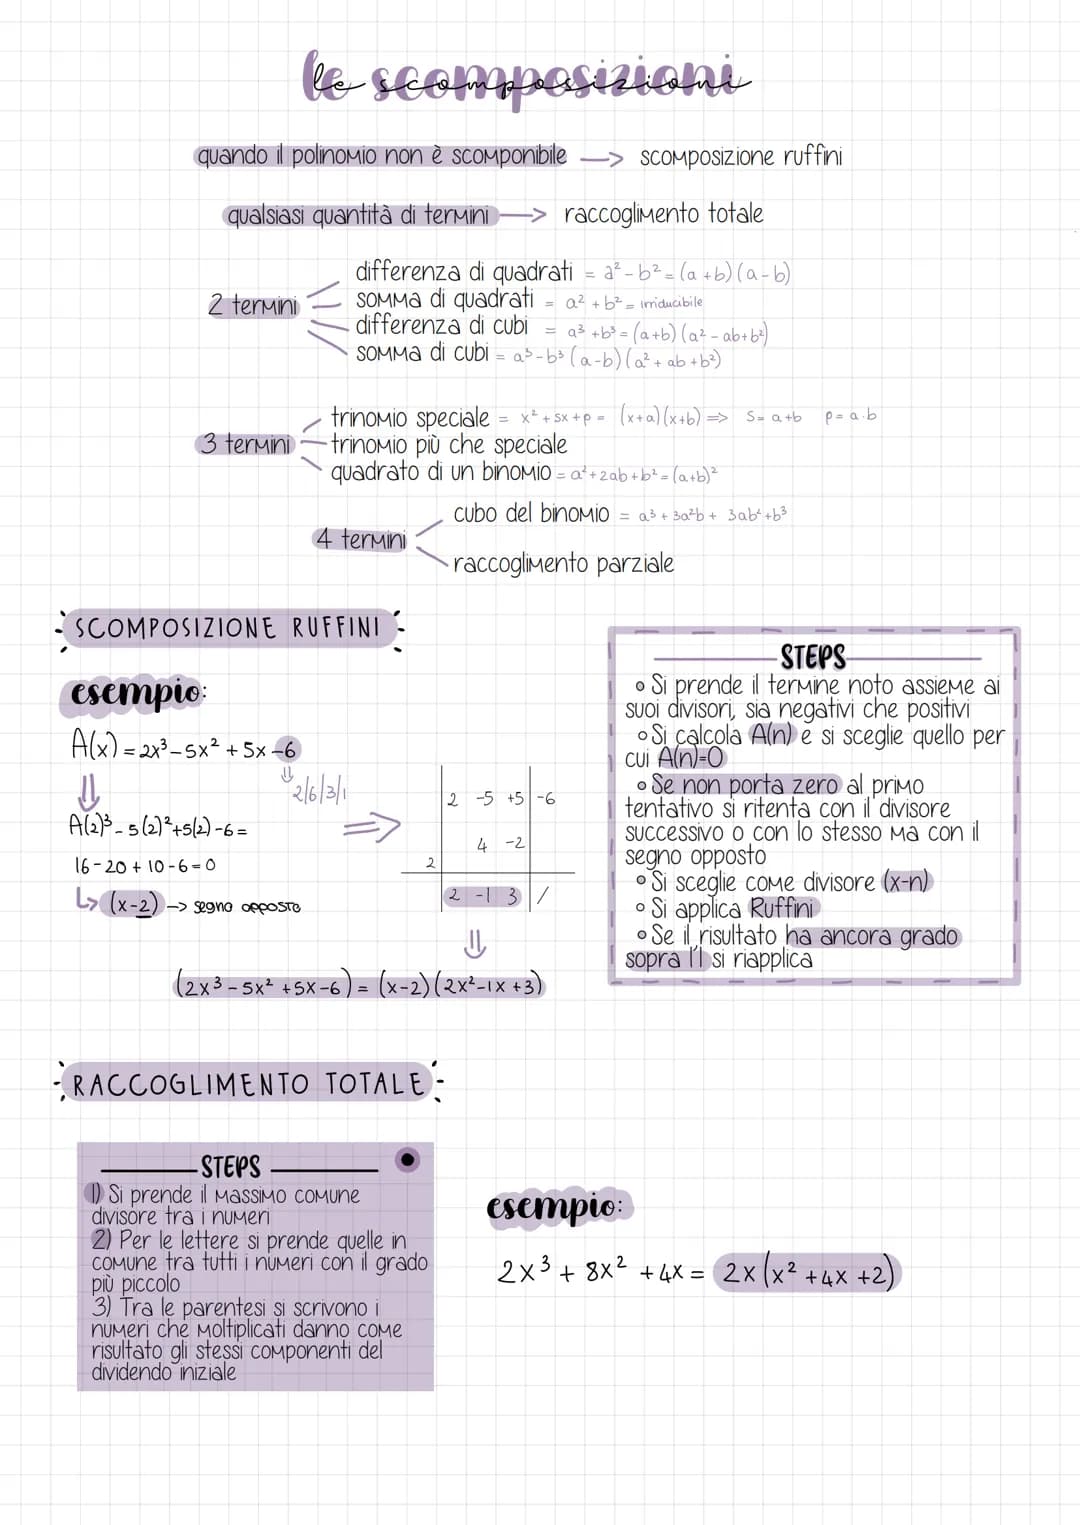 le scomposizioni
quando il polinomio non è scomponibile —> scomposizione ruffini
qualsiasi quantità di termini —> raccoglimento totale
2 termini
differenza di quadrati = a² - b² = (a + b) (a - b)
somma di quadrati = a² + b² = irriducibile
differenza di cubi = a³ + b³ = (a+b) (a² - ab + b²)
somma di cubi = a³ - b³ (a - b) (a² + ab + b²)
3 termini
trinomio speciale = x² + sx + p = (x+a) (x+b) => S = a+b p = a·b
trinomio più che speciale
quadrato di un binomio = a² + 2ab + b² = (a+b)²
4 termini
cubo del binomio = a³ + 3a²b + 3ab² + b³
raccoglimento parziale
SCOMPOSIZIONE RUFFINI
esempio:
A(x) = 2x³ - 5x² + 5x - 6
2/6/3/1
A(2)³ - 5(2)² + 5(2) - 6 =
16 - 20 + 10 - 6 = 0
(x-2) -> segno opposto
2 -5 +5 -6
4 -2
2
2 -1 3 /
(2x³ - 5x² + 5x - 6) = (x-2) (2x² - 1x + 3)
STEPS
• Si prende il termine noto assieme ai
suoi divisori, sia negativi che positivi
• Si calcola A(n) e si sceglie quello per
cui A(n)=0
• Se non porta zero al primo
tentativo si ritenta con il divisore
successivo o con lo stesso ma con il
segno opposto
• Si sceglie come divisore (x-n)
• Si applica Ruffini
• Se il risultato ha ancora grado
sopra l'1 si riapplica
RACCOGLIMENTO TOTALE
STEPS
1) Si prende il massimo comune
divisore tra i numeri
2) Per le lettere si prende quelle in
comune tra tutti i numeri con il grado
più piccolo
3) Tra le parentesi si scrivono i
numeri che moltiplicati danno come
risultato gli stessi componenti del
dividendo iniziale
esempio:
2x³ + 8x² + 4x = 2x (x² + 4x + 2)